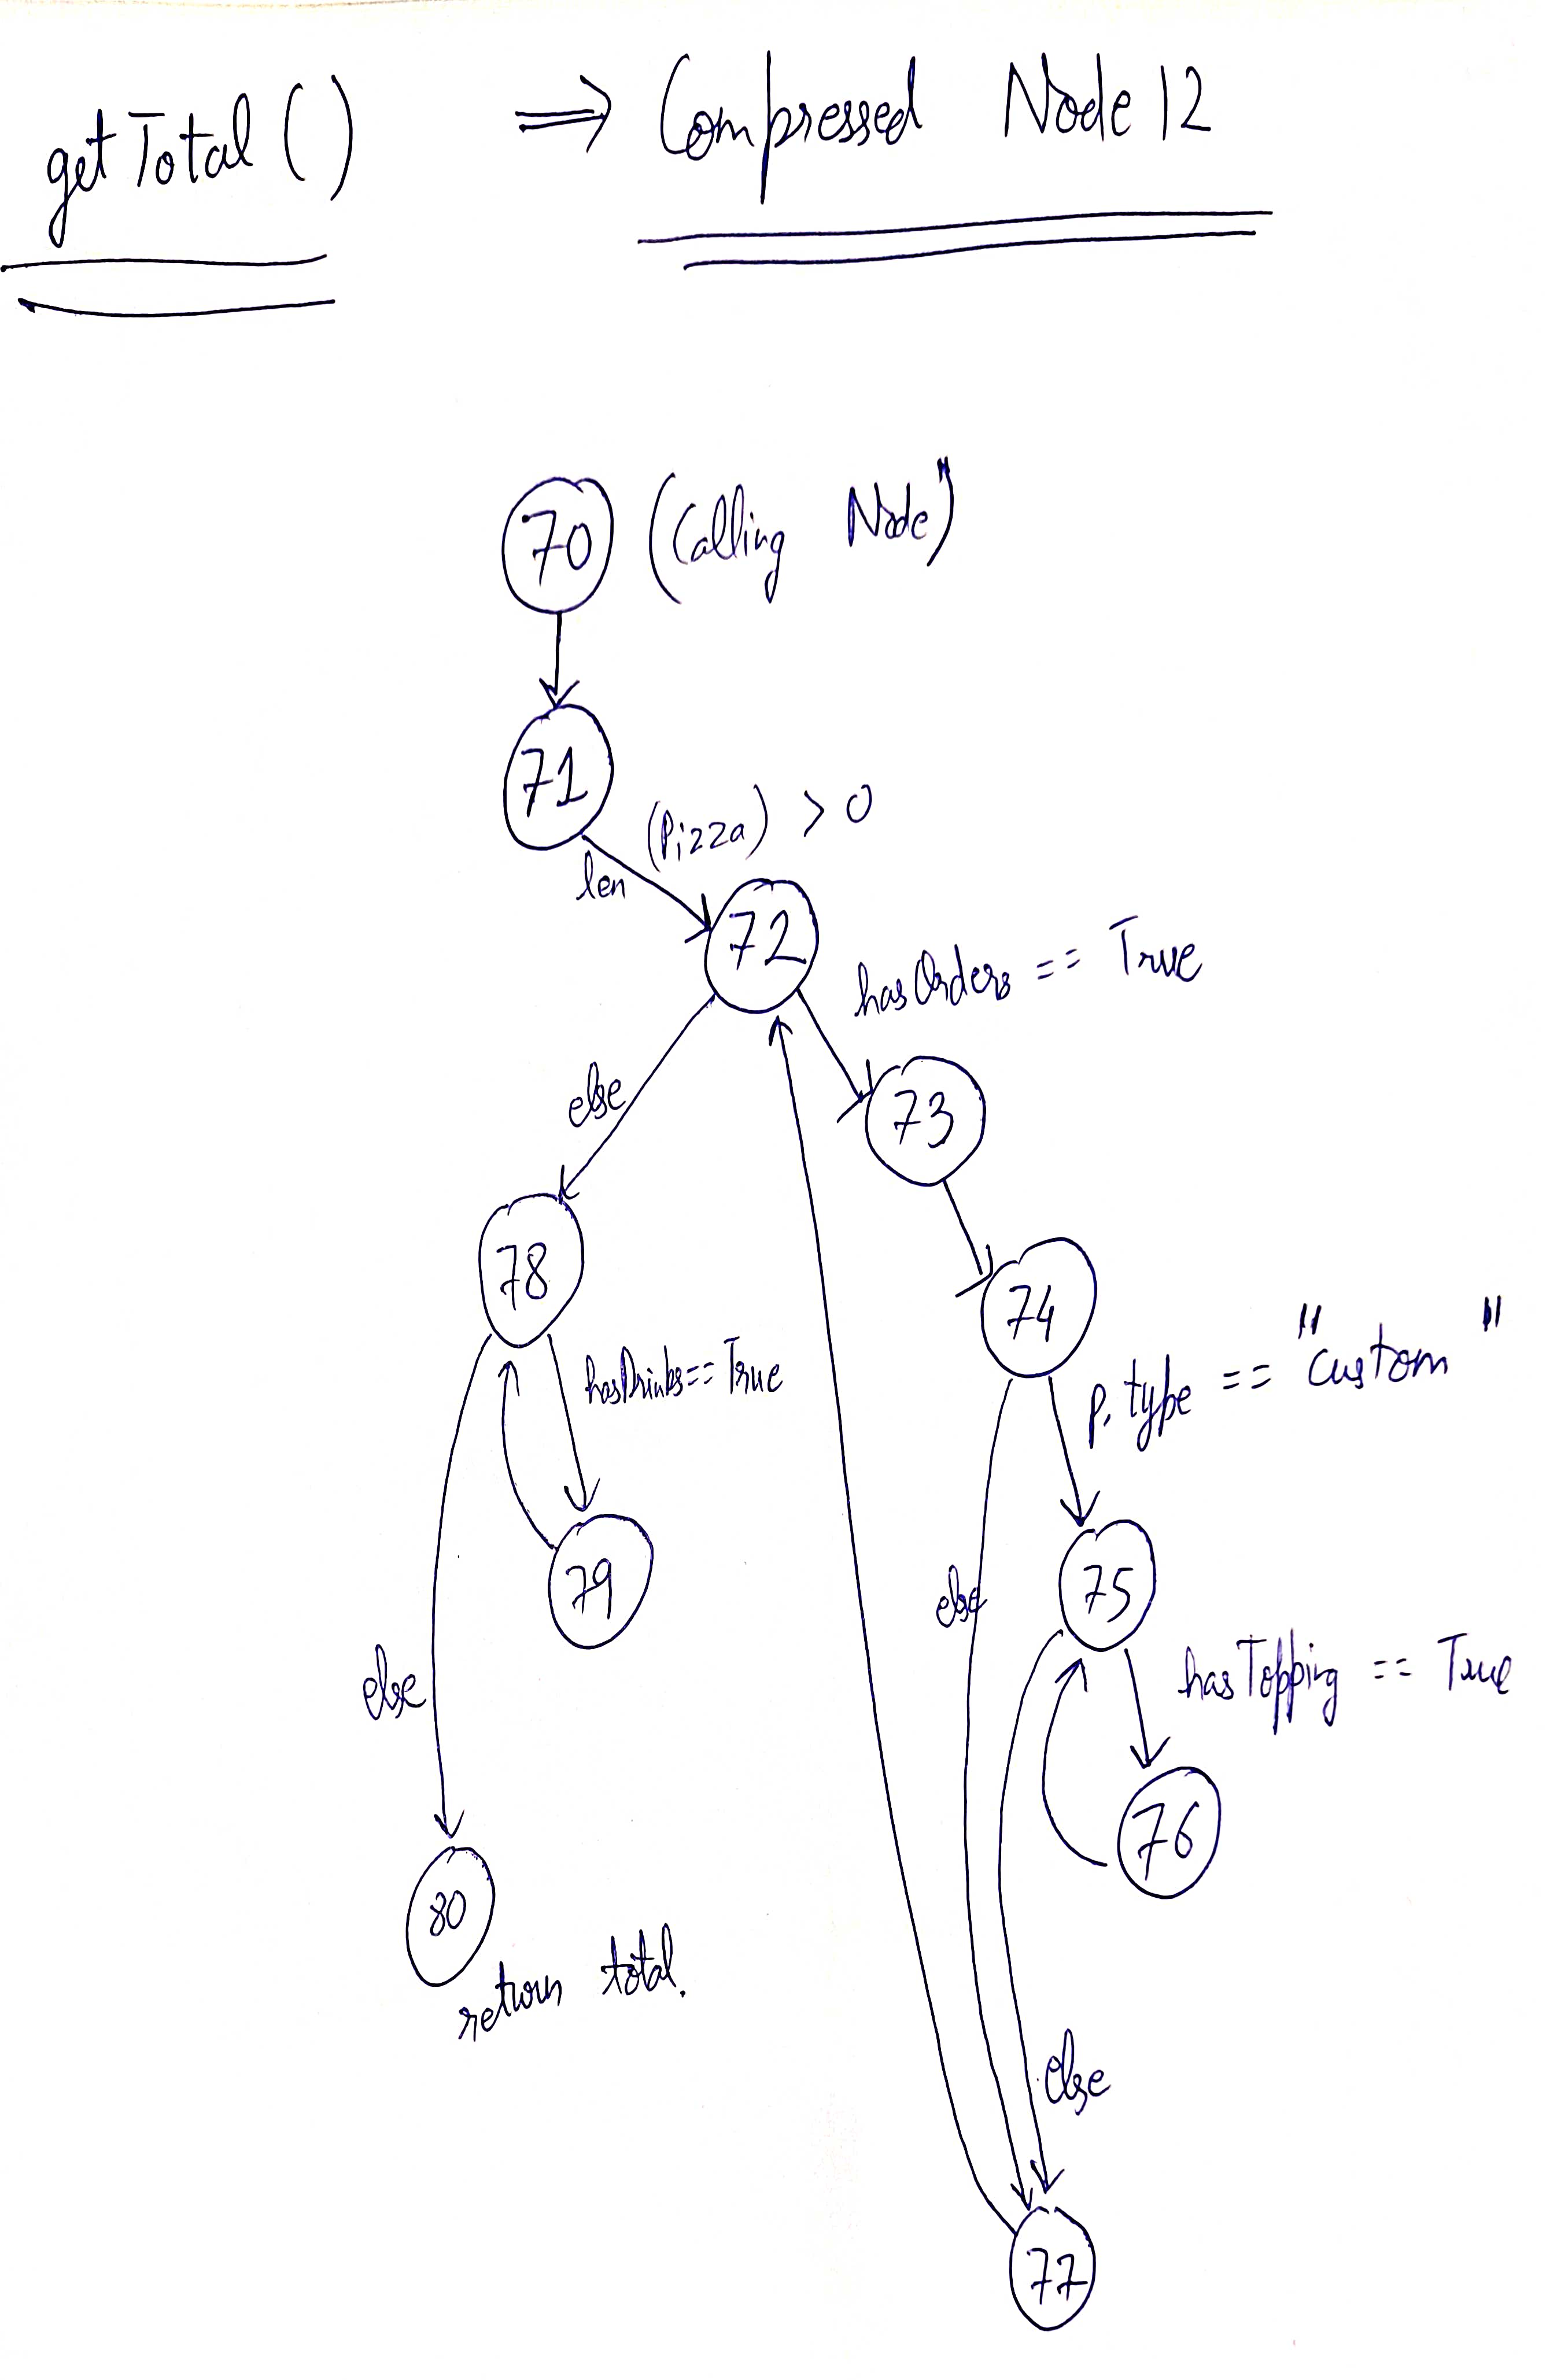 getTotal() ⇒ Compressed Node 12
70 (Calling Node")
71
len (Pizza) > 0
72
hasOrders == True
else
73
78
74
hasDrinks == True
p.type == "custom"
79
75
else
else
hasTopping == True
76
80
return total.
else
77